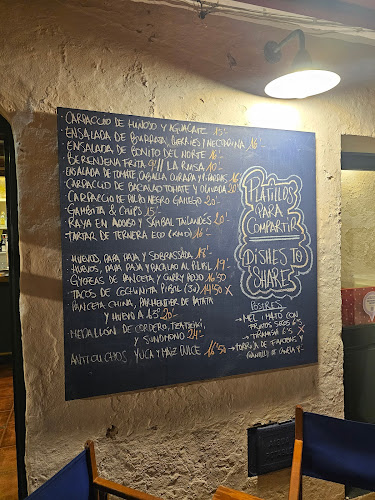 - CARPACCIO DE HINOJO Y AGUACATE 15'-
- ENSALADA DE BURRATA, CHERRIES Y NECTARINA 16'-
- ENSALADA DE BONITO DEL NORTE 16'-
- BERENJENA FRITA A LA RMSA 10'-
- ENSALADA DE TOMATE CABALLA CURADA Y 16'-
- CARPACCIO DE BACALAO TOMATE Y OLIVADA 20'-
- CARPACCIO DE PULPO NEGRO GALLEGO 20'-
- GAMBITA & CHIPS 15'-
- RAYA EN ADOBO Y SAMBAL TAILANDÉS 20'-
- TARTAR DE TERNERA ECO 16'-
- HUEVOS, PAPA PAJA Y SOBRASSADA 18'-
- HUEVOS, PAPA PAJA Y BACALAO AL PILPIL 19'-
- GYOZAS DE PANCETA Y CURRY ROJO 16'50
- TACOS DE COCHINITA PIBIL (3u) 14'50 X
- PANCETA CHINA, PARMENTIER DE PATATA
Y HUEVO A 65 20'-
- MEDALLÓN DE CORDERO, TZATZIKI
Y 24'-
- ANTICUCHOS, YUCA Y MAIZ DULCE 16'50
PLATILLOS
PARA
COMPARTIR
DISHES TO
SHARE
POSTRES
→ MEL I MATÓ CON
FRUTOS SECOS 6'5
→ TIRAMISÚ 6'5 X
→ TORRIJA DE